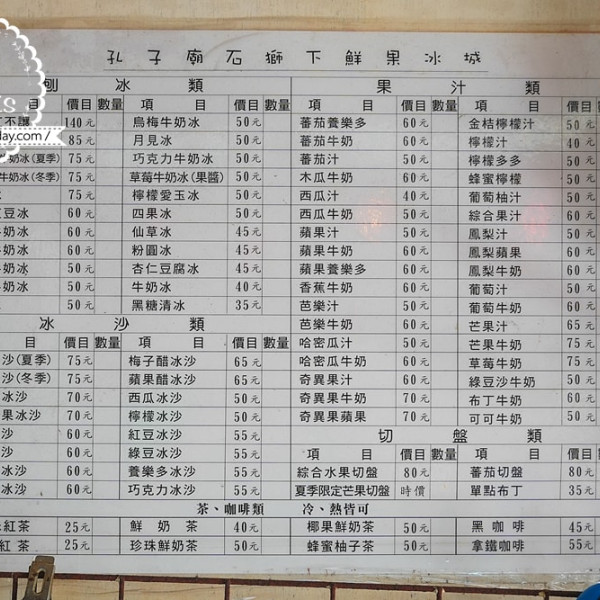 day.com /
孔子廟石獅下鮮果冰城
刨 冰 類 果 汁 類
目 價目 數量 項 目 價目 數量 項 目 價目 數量 項 目 價目
不讓 140元 烏梅牛奶冰 50元 蕃茄養樂多 60元 金桔檸檬汁 50元
85元 月見冰 50元 蕃茄牛奶 60元 檸檬汁 40元
牛奶冰(夏季) 75元 巧克力牛奶冰 50元 蕃茄汁 50元 檸檬多多 50元
牛奶冰(冬季) 75元 草莓牛奶冰(果醬) 50元 木瓜牛奶 50元 蜂蜜檸檬 50元
冰 75元 檸檬愛玉冰 50元 西瓜汁 40元 葡萄柚汁 50元
豆冰 60元 四果冰 50元 西瓜牛奶 50元 綜合果汁 60元
牛奶冰 60元 仙草冰 45元 蘋果汁 50元 鳳梨汁 50元
牛奶冰 60元 粉圓冰 45元 蘋果牛奶 60元 鳳梨蘋果 60元
牛奶冰 50元 杏仁豆腐冰 45元 蘋果養樂多 60元 鳳梨牛奶 50元
牛奶冰 50元 牛奶冰 40元 香蕉牛奶 60元 葡萄汁 50元
50元 黑糖清冰 35元 芭樂汁 50元 葡萄牛奶 60元
冰 沙 類 芭樂牛奶 60元 芒果汁 65元
目 價目 數量 項 目 價目 數量 哈密瓜汁 50元 芒果牛奶 75元
沙(夏季) 75元 梅子醋冰沙 65元 哈密瓜牛奶 60元 草莓牛奶 75元
沙(冬季) 75元 蘋果醋冰沙 65元 奇異果汁 60元 綠豆沙牛奶 50元
冰沙 70元 西瓜冰沙 50元 奇異果牛奶 70元 布丁牛奶 60元
果冰沙 70元 檸檬冰沙 50元 奇異果蘋果 70元 可可牛奶 50元
沙 60元 紅豆冰沙 55元 切 盤 類
冰沙 60元 綠豆冰沙 55元 項 目 價目 數量 項 目 價目
冰沙 60元 養樂多冰沙 55元 綜合水果切盤 80元 蕃茄切盤 80元
冰沙 60元 巧克力冰沙 55元 夏季限定芒果切盤 時價 單點布丁 35元
茶、咖啡類 冷、熱皆可
紅茶 25元 鮮奶茶 40元 椰果鮮奶茶 50元 黑咖啡 45元
紅茶 25元 珍珠鮮奶茶 50元 蜂蜜柚子茶 50元 拿鐵咖啡 55元